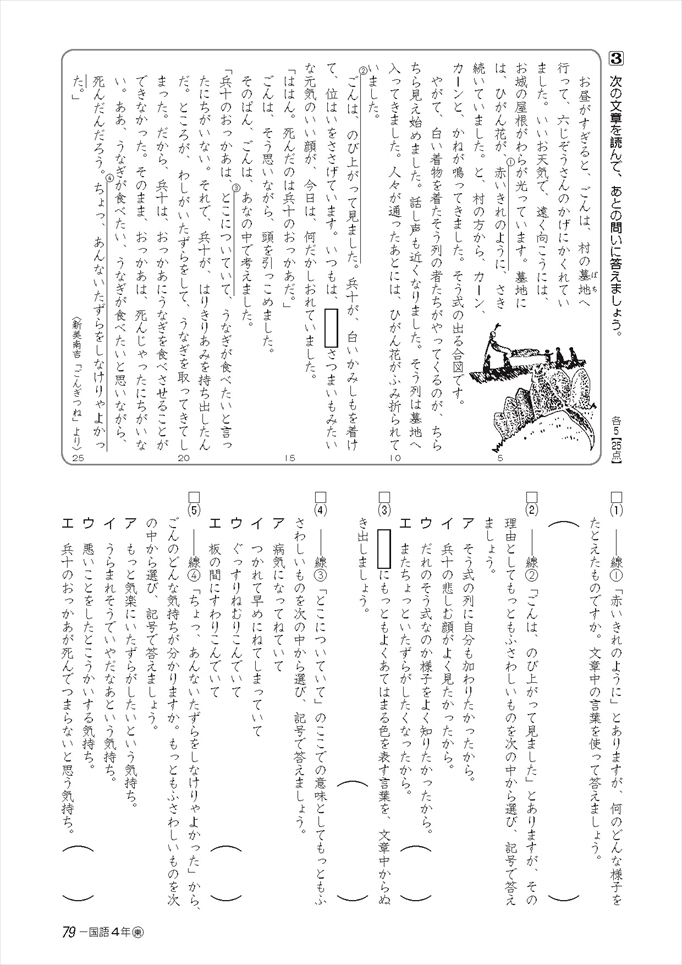 3 次の文章を読んで、あとの問いに答えましょう。
各5【25点】
お昼がすぎると、ごんは、村の墓地へ
ぼち
行って、六じぞうさんのかげにかくれてい
ました。いいお天気で、遠く向こうには、
お城の屋根がわらが光っています。墓地に
は、ひがん花が、①赤いきれのように、さき
続いていました。と、村の方から、カーン、
カーンと、かねが鳴ってきました。そう式の出る合図です。
やがて、白い着物を着たそう列の者たちがやってくるのが、ちら
ちら見え始めました。話し声も近くなりました。そう列は墓地へ
入ってきました。人々が通ったあとには、ひがん花がふみ折られて
いました。
②ごんは、のび上がって見ました。兵十が、白いかみしもを着け
て、位はいをささげています。いつもは、□さつまいもみたい
な元気のいい顔が、今日は、何だかしおれていました。
「ははん。死んだのは兵十のおっかあだ。」
ごんは、そう思いながら、頭を引っこめました。
そのばん、ごんは、あなの中で考えました。
「兵十のおっかあは、③とこについていて、うなぎが食べたいと言っ
たにちがいない。それで、兵十が、はりきりあみを持ち出したん
だ。ところが、わしがいたずらをして、うなぎを取ってきてし
まった。だから、兵十は、おっかあにうなぎを食べさせることが
できなかった。そのまま、おっかあは、死んじゃったにちがいな
い。ああ、うなぎが食べたい、うなぎが食べたいと思いながら、
死んだんだろう。④ちょっ、あんないたずらをしなけりゃよかっ
た。」
〈新美南吉「ごんぎつね」より〉
5
10
15
20
25
□(1) ――線①「赤いきれのように」とありますが、何のどんな様子を
たとえたものですか。文章中の言葉を使って答えましょう。
( )
□(2) ――線②「ごんは、のび上がって見ました」とありますが、その
理由としてもっともふさわしいものを次の中から選び、記号で答え
ましょう。
ア そう式の列に自分も加わりたかったから。
イ 兵十の悲しむ顔がよく見たかったから。
ウ だれのそう式なのか様子をよく知りたかったから。
エ またちょっといたずらがしたくなったから。
( )
□(3) □にもっともよくあてはまる色を表す言葉を、文章中からぬ
き出しましょう。
( )
□(4) ――線③「とこについていて」のここでの意味としてもっともふ
さわしいものを次の中から選び、記号で答えましょう。
ア 病気になってねていて
イ つかれて早めにねてしまっていて
ウ ぐっすりねむりこんでいて
エ 板の間にすわりこんでいて
( )
□(5) ――線④「ちょっ、あんないたずらをしなけりゃよかった」から、
ごんのどんな気持ちが分かりますか。もっともふさわしいものを次
の中から選び、記号で答えましょう。
ア もっと気楽にいたずらがしたいという気持ち。
イ うらまれそうでいやだなあという気持ち。
ウ 悪いことをしたとこうかいする気持ち。
エ 兵十のおっかあが死んでつまらないと思う気持ち。
( )
79 ―国語4年㊥